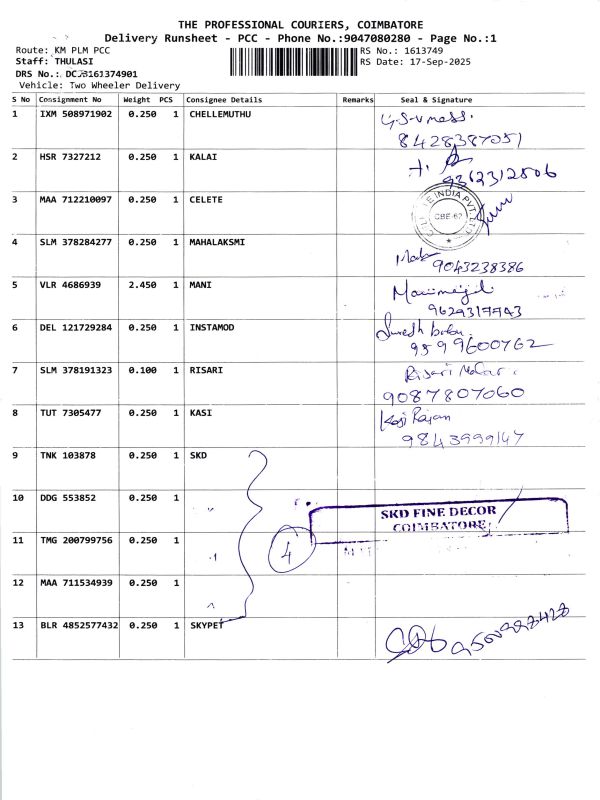 THE PROFESSIONAL COURIERS, COIMBATORE
Delivery Runsheet - PCC - Phone No.:9047080280 - Page No.:1
Route: KM PLM PCC
RS No.: 1613749
Staff: THULASI
RS Date: 17-Sep-2025
DRS No.: DCJ3161374901
Vehicle: Two Wheeler Delivery
S No Consignment No Weight PCS Consignee Details Remarks Seal & Signature
1 IXM 508971902 0.250 1 CHELLEMUTHU
8428387051
2 HSR 7327212 0.250 1 KALAI
9362312506
3 MAA 712210097 0.250 1 CELETE
INDIA PVT. LTD
CBE-62
4 SLM 378284277 0.250 1 MAHALAKSMI
9043238386
5 VLR 4686939 2.450 1 MANI
9629317743
6 DEL 121729284 0.250 1 INSTAMOD
Suresh babu
9599600762
7 SLM 378191323 0.100 1 RISARI
Risari
9087807060
8 TUT 7305477 0.250 1 KASI
Kasi Rajan
9843999147
9 TNK 103878 0.250 1 SKD
10 DDG 553852 0.250 1 "
SKD FINE DECOR
COIMBATORE
11 TMG 200799756 0.250 1 "
4
12 MAA 711534939 0.250 1 "
13 BLR 4852577432 0.250 1 SKYPET